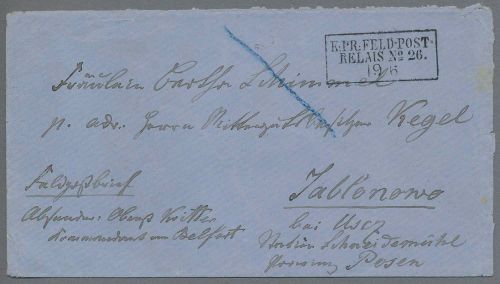 K:PR:FELD-POST-
RELAIS No 26.
19/6
Fräulein Bertha Schimmel
p. adr. Herrn Rittergutsbesitzer Kegel
Feldpostbrief
Absender: Oberst
Kommandant von Belfort
Jablonowo
bei Uscz
Station Schneidemühl
Provinz Posen